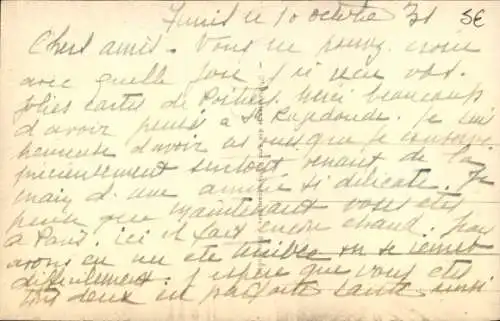 Tunis le 10 octobre 31
5E
Chers amis. Vous ne pouvez croire
avec quelle joie j'ai reçu vos
jolies cartes de Poitiers. Merci beaucoup
d'avoir pensé à Ste Radegonde. Je suis
heureuse d'avoir ces vues que je conserve
précieusement surtout venant de la
main d'une amitié si délicate. Je
pense que maintenant vous êtes
à Paris. Ici il fait encore chaud. Nous
avons eu un été terrible on se remet
difficilement. J'espère que vous êtes
tous deux en parfaite santé ainsi